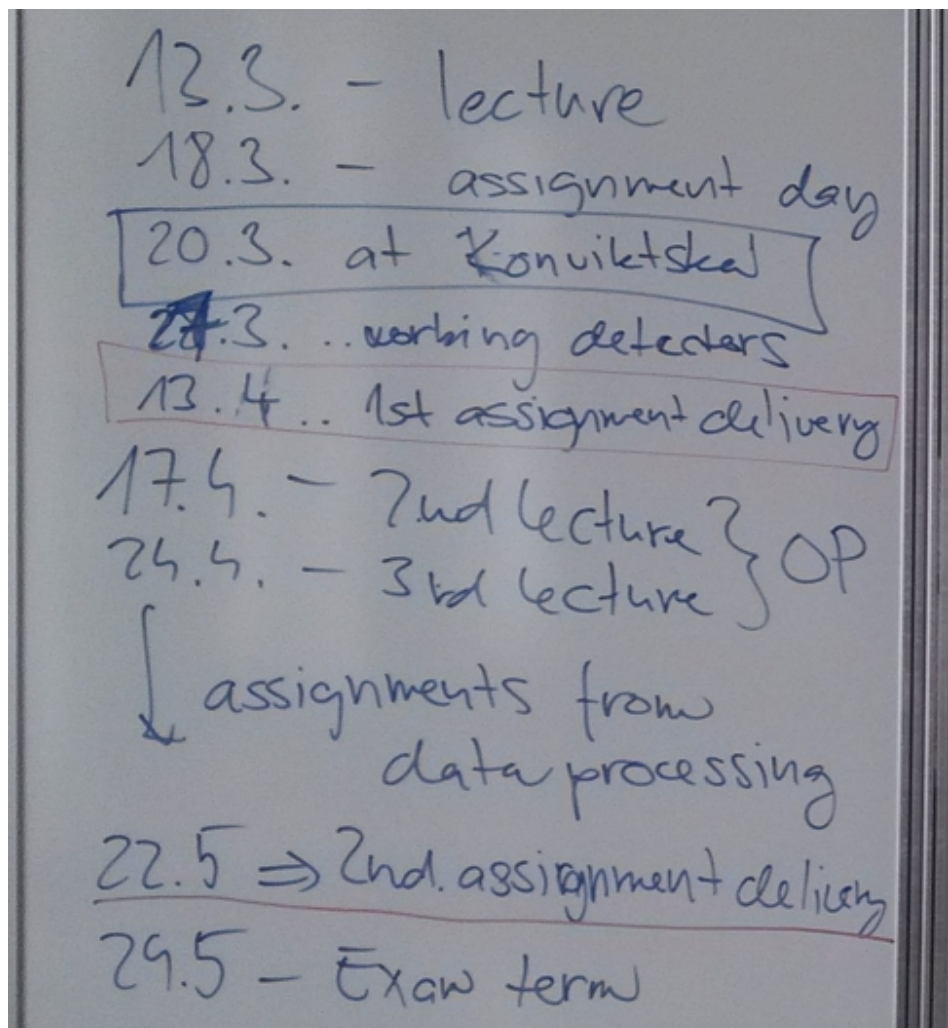 13.3. - lecture
18.3. - assignment day
20.3. at Konviktská
27.3. .. working detectors
13.4 .. 1st assignment delivery
17.4. - 2nd lecture } OP
24.4. - 3rd lecture
↓ assignments from
data processing
22.5 ⇒ 2nd. assignment delivery
29.5 - Exam term